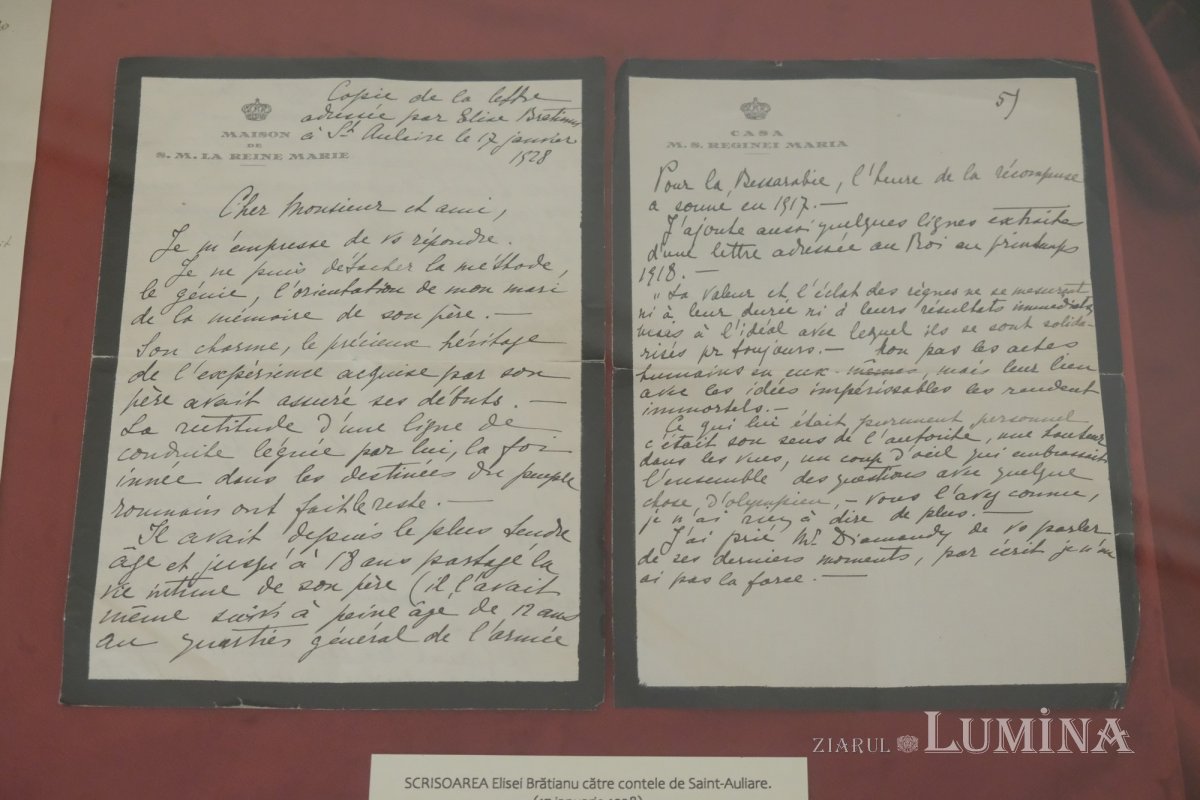 MAISON
DE
S. M. LA REINE MARIE
Copie de la lettre
adressée par Elise Bratianu
à St Aulaire le 17 janvier
1928
Cher Monsieur et ami,
Je m'empresse de vs répondre.
Je ne puis détacher la méthode,
le génie, l'orientation de mon mari
de la mémoire de son père. —
Son charme, le précieux héritage
de l'expérience acquise par son
père avait assuré ses débuts. —
La rectitude d'une ligne de
conduite léguée par lui, la foi
innée dans les destinées du peuple
roumain ont fait le reste. —
Il avait depuis le plus tendre
âge et jusqu'à 18 ans partagé la
vie intime de son père (il l'avait
même suivi à peine âgé de 12 ans
au quartier général de l'armée
5)
CASA
M. S. REGINEI MARIA
Pour la Bessarabie, l'heure de la récompense
a sonné en 1917. —
J'ajoute aussi quelques lignes extraites
d'une lettre adressée au Roi au printemps
1918. —
"La valeur et l'éclat des règnes ne se mesurent
ni à leur durée ni à leurs résultats immédiats,
mais à l'idéal avec lequel ils se sont solida-
risés pr toujours. — Non pas les actes
humains en eux-mêmes, mais leur lien
avec les idées impérissables les rendent
immortels. —
Ce qui lui était purement personnel
c'était son sens de l'autorité, une hauteur
dans les vues, un coup d'oeil qui embrassait
l'ensemble des questions avec quelque
chose d'olympien, — vous l'avez connu,
je n'ai rien à dire de plus. —
J'ai prié Mr. Diamandy de vs parler
de ses derniers moments, par écrit je n'en
ai pas la force. —
ZIARUL LUMINA
SCRISOAREA Elisei Brătianu către contele de Saint-Auliare.
(17 ianuarie 1928)